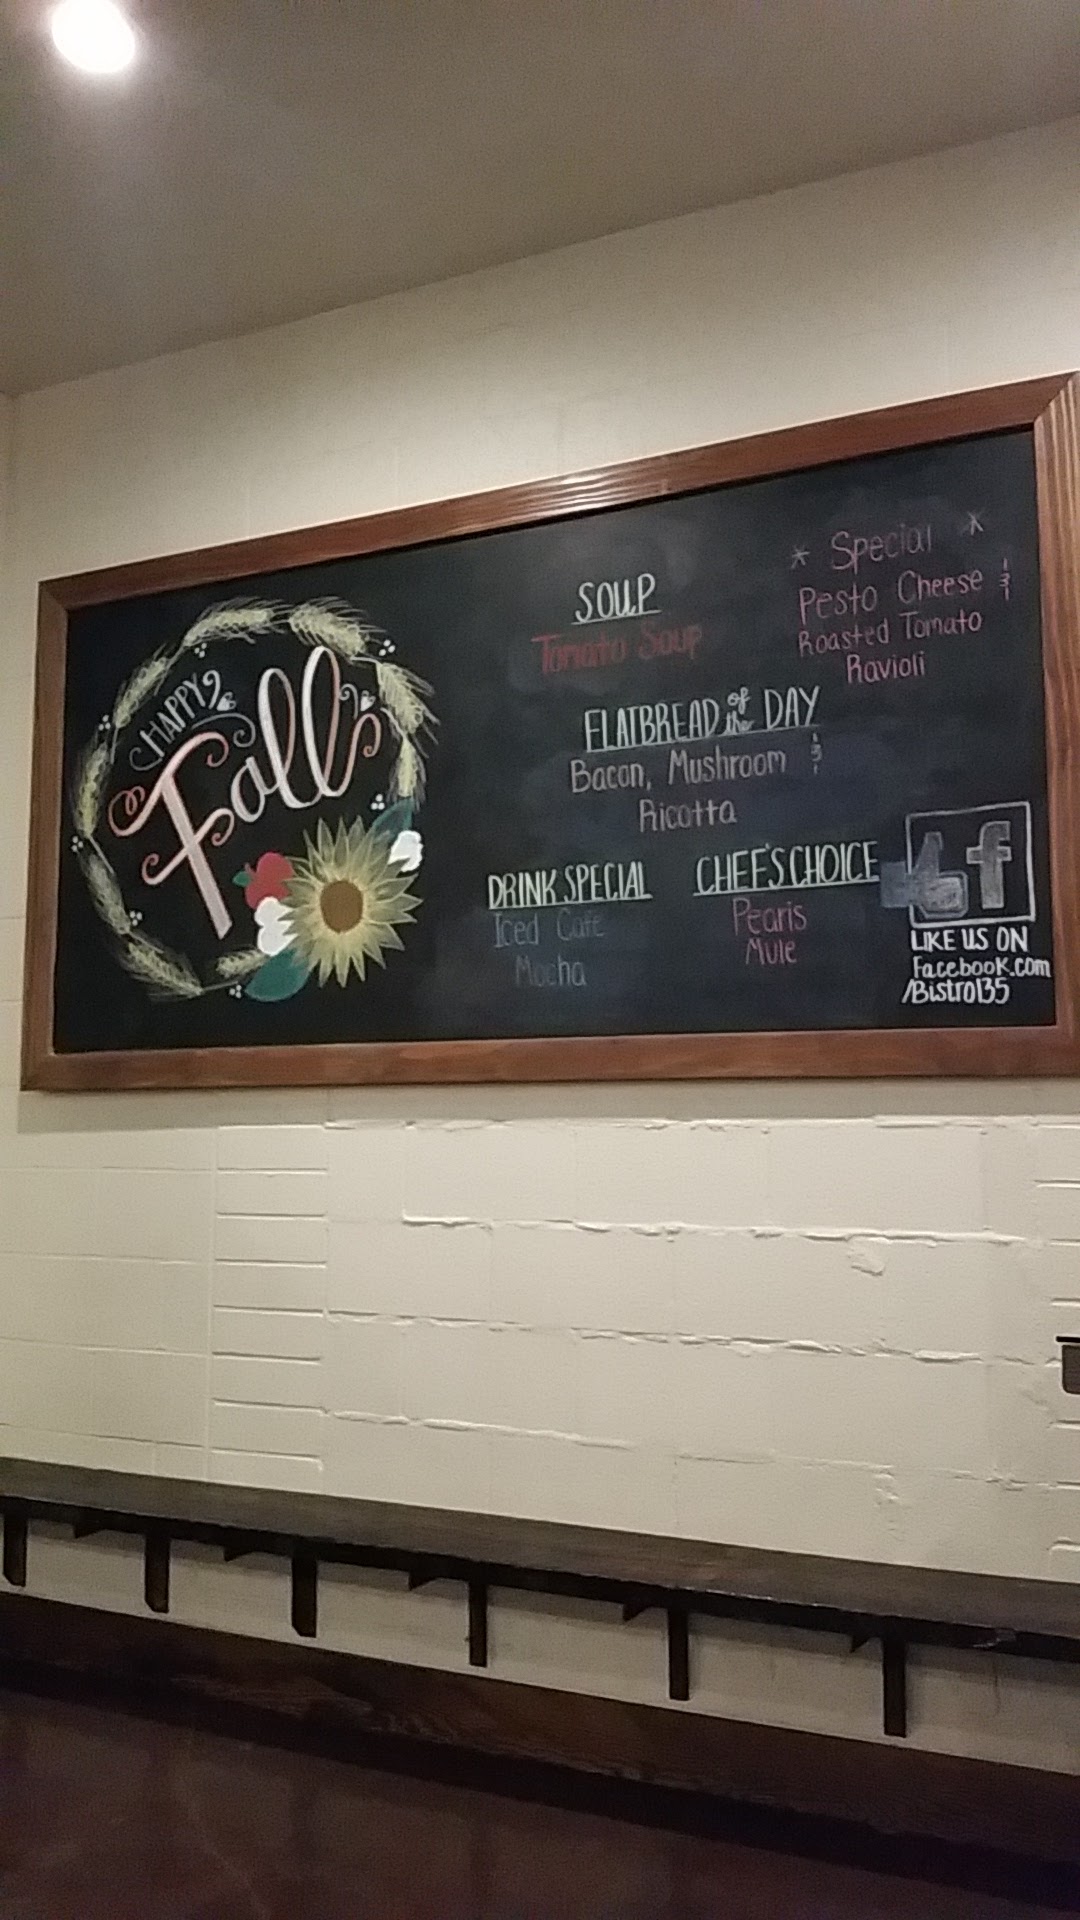 HAPPY
Fall
SOUP
Tomato Soup
* Special *
Pesto Cheese &
Roasted Tomato
Ravioli
FLATBREAD of the DAY
Bacon, Mushroom &
Ricotta
DRINK SPECIAL
Iced Cafe
Mocha
CHEF'S CHOICE
Pearis
Mule
f
LIKE US ON
Facebook.com
/Bistro135